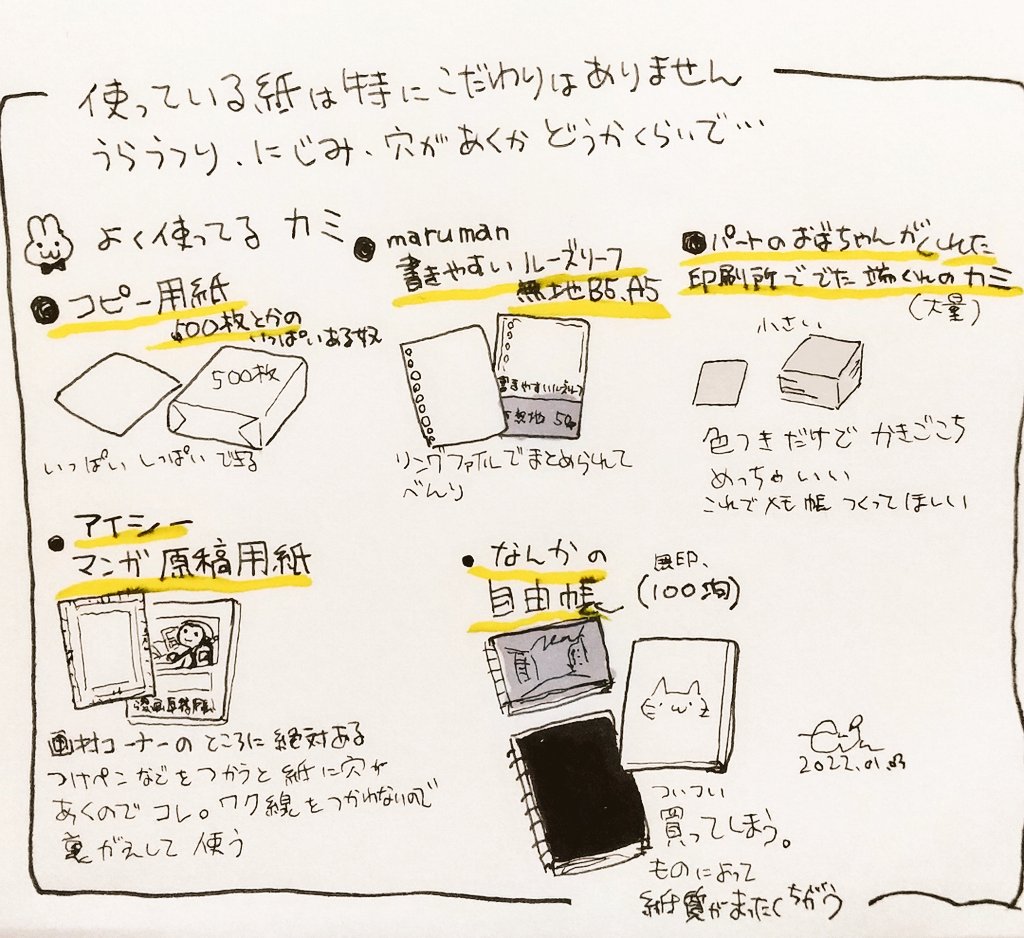 使っている紙は特にこだわりはありません
うらうつり、にじみ、穴があくかどうかくらいで…
よく使ってるカミ
コピー用紙
500枚とかの
いっぱいある奴
500枚
いっぱいしっぱいできる
maruman
書きやすいルーズリーフ
無地B5、A5
書きやすいルーズリーフ
無地 50
リングファイルでまとめられて
べんり
パートのおばちゃんがくれた
印刷所ででた端くれのカミ
(大量)
小さい
色つきだけどかきごこち
めっちゃいい
これでメモ帳つくってほしい
アイシー
マンガ原稿用紙
漫画原稿用紙
画材コーナーのところに絶対ある
つけペンなどをつかうと紙に穴が
あくのでコレ。ワク線をつかわないので
裏がえして使う
なんかの
自由帳
無印、
(100均)
ついつい
買ってしまう。
ものによって
紙質がまったくちがう
2022.01.03